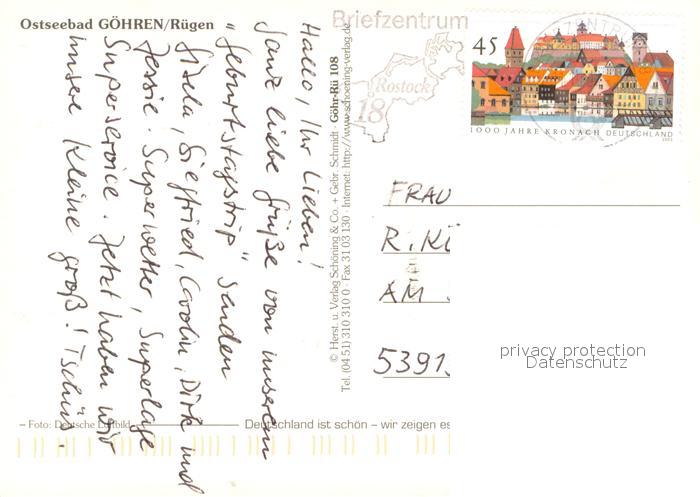 Ostseebad GÖHREN/Rügen
Hallo, Ihr Lieben!
Ganz liebe Grüße von unserem
"Geburtstagstrip" senden
Gisela, Siegfried, Carolin, Dirk und
Jessie. Superwetter, Superlage
Superservice. Jetzt haben wir
unsere Kleine groß! Tschüs.
– Foto: Deutsche Luftbild –
© Herst. u. Verlag Schöning & Co. + Gebr. Schmidt · Göhr-Rü 108
Tel. (04 51) 310 310 0 · Fax 31 03 130 · Internet: http://www.schoening-verlag.de
Deutschland ist schön – wir zeigen es
Briefzentrum
Rostock
18
45
1000 JAHRE KRONACH DEUTSCHLAND
2003
FRAU
R. KÜ
AM
5391
privacy protection
Datenschutz